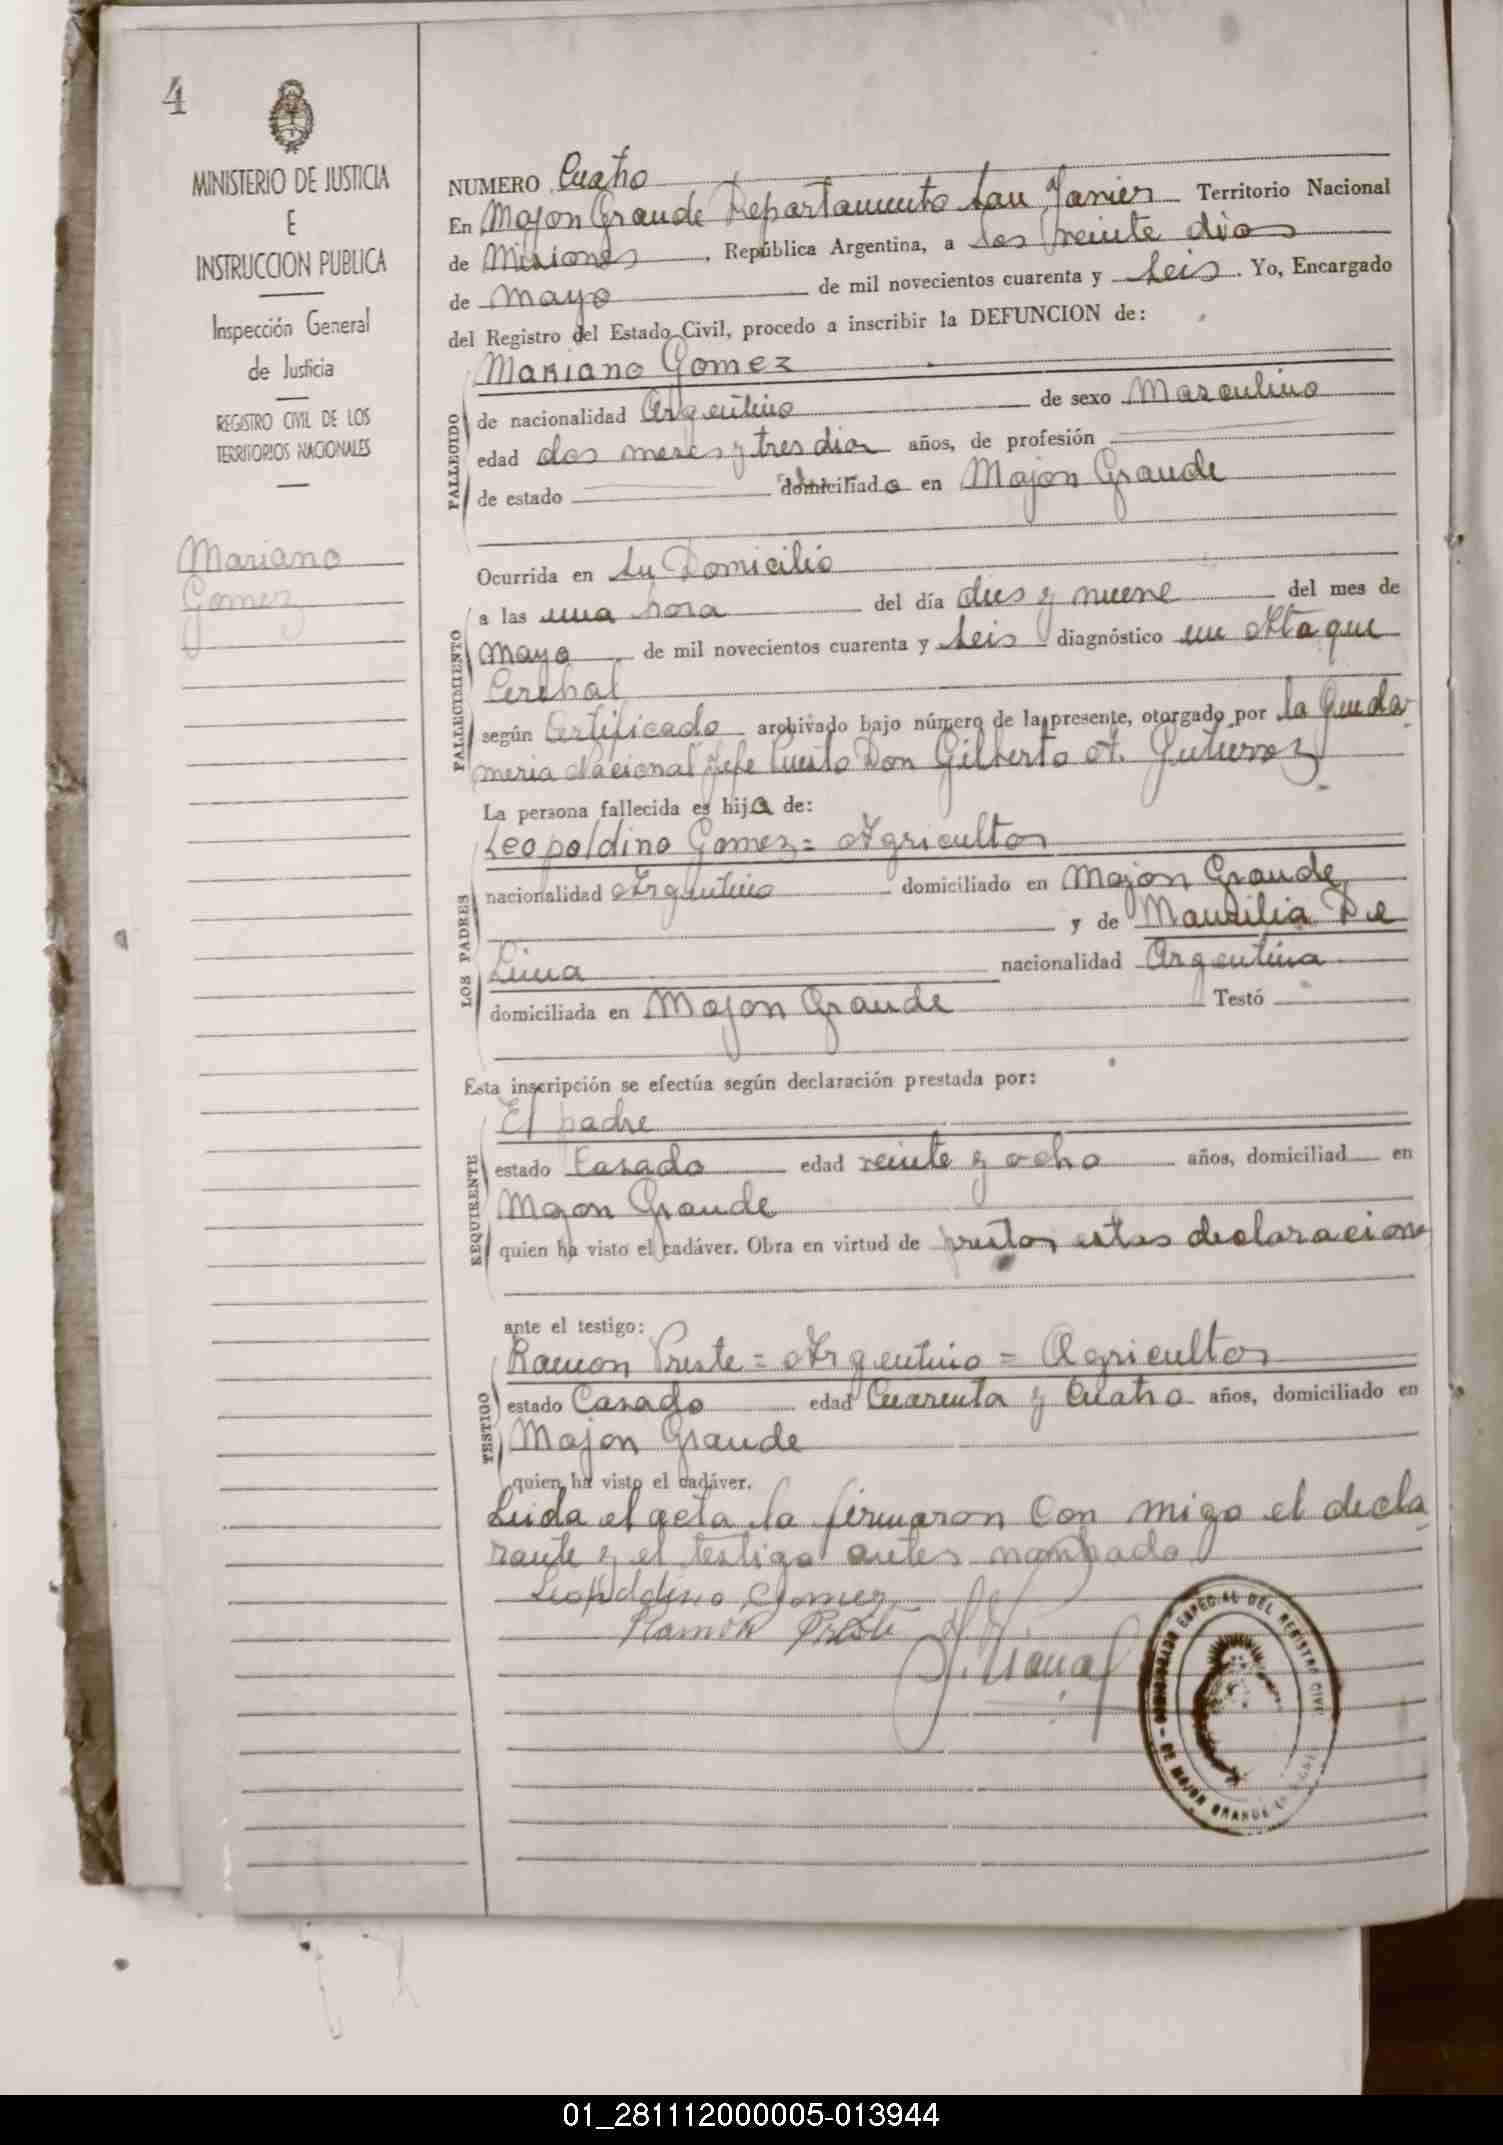 4
MINISTERIO DE JUSTICIA
E
INSTRUCCION PUBLICA
Inspección General
de Justicia
REGISTRO CIVIL DE LOS
TERRITORIOS NACIONALES
Mariano
Gomez
NUMERO Cuatro
En Mojon Grande Departamento San Javier Territorio Nacional
de Misiones, República Argentina, a los veinte dias
de Mayo de mil novecientos cuarenta y seis. Yo, Encargado
del Registro del Estado Civil, procedo a inscribir la DEFUNCION de:
Mariano Gomez
FALLECIDO
de nacionalidad Argentino de sexo Masculino
edad dos meses y tres dias años, de profesión
de estado domiciliado en Mojon Grande
Ocurrida en su Domicilio
FALLECIMIENTO
a las una hora del día dies y nueve del mes de
Mayo de mil novecientos cuarenta y seis diagnóstico un Ataque
Cerebal
según Certificado archivado bajo número de la presente, otorgado por la Genda
meria Nacional Jefe Puesto Don Gilberto A. Gutierrez
La persona fallecida es hija de:
LOS PADRES
Leopoldino Gomez = Agricultor
nacionalidad Argentino domiciliado en Mojon Grande
y de Maurilia De
Lima nacionalidad Argentina
domiciliada en Mojon Grande Testó
Esta inscripción se efectúa según declaración prestada por:
REQUIRENTE
El padre
estado Casado edad veinte y ocho años, domiciliad en
Mojon Grande
quien ha visto el cadáver. Obra en virtud de prestar estas declaracion
ante el testigo:
TESTIGO
Ramon Preste = Argentino = Agricultor
estado Casado edad Cuarenta y Cuatro años, domiciliado en
Mojon Grande
quien ha visto el cadáver.
Leida el acta la firmaron Con migo el decla
rante y el testigo antes nombado
Leopoldino Gomez
Ramón Preste
COMISIONADO ESPECIAL DEL REGISTRO CIVIL
DE MOJON GRANDE
01_281112000005-013944